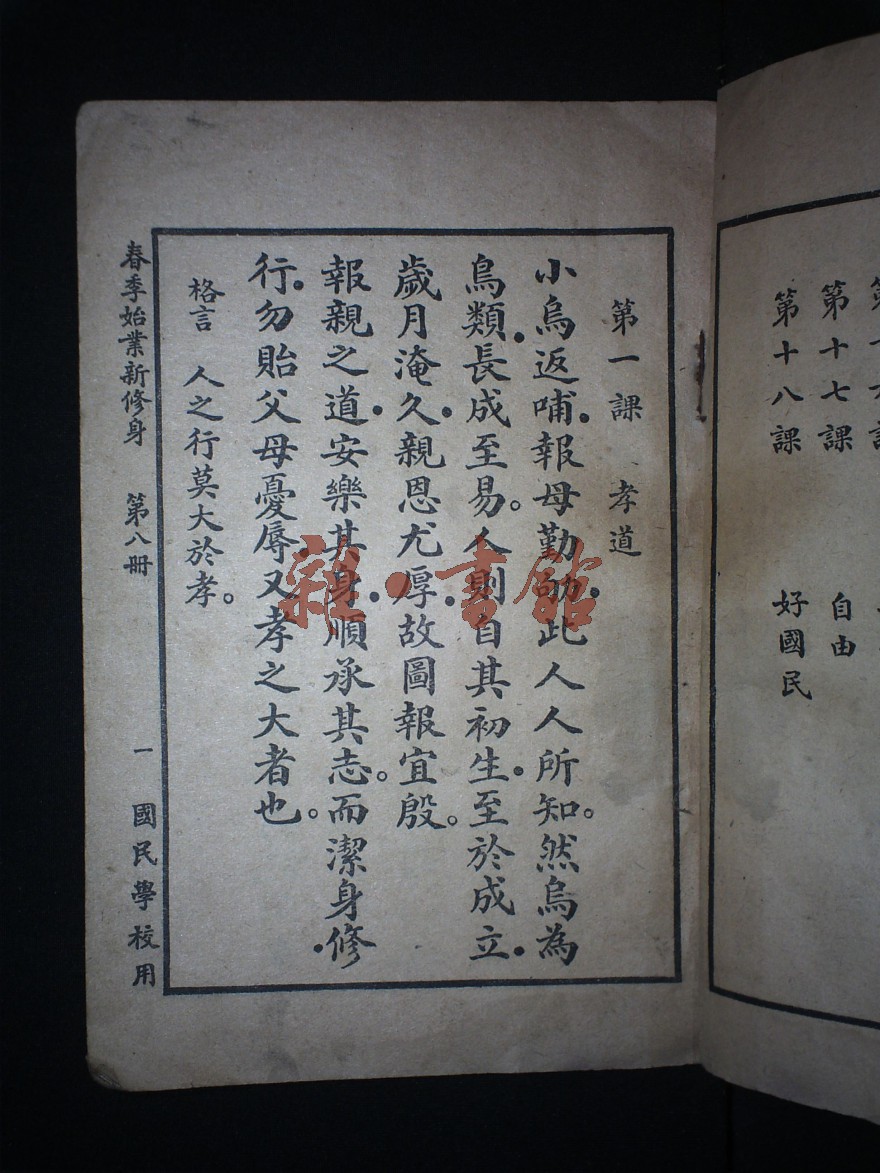 第十七課 自由
第十八課 好國民
第一課 孝道
小烏返哺．報母勤劬．此人人所知。然烏為
鳥類．長成至易。人則自其初生．至於成立．
歲月淹久．親恩尤厚．故圖報宜殷。
報親之道．安樂其身．順承其志。而潔身修
行．勿貽父母憂辱．又孝之大者也。
格言 人之行莫大於孝。
春季始業新修身 第八冊 一 國民學校用
雜·書館